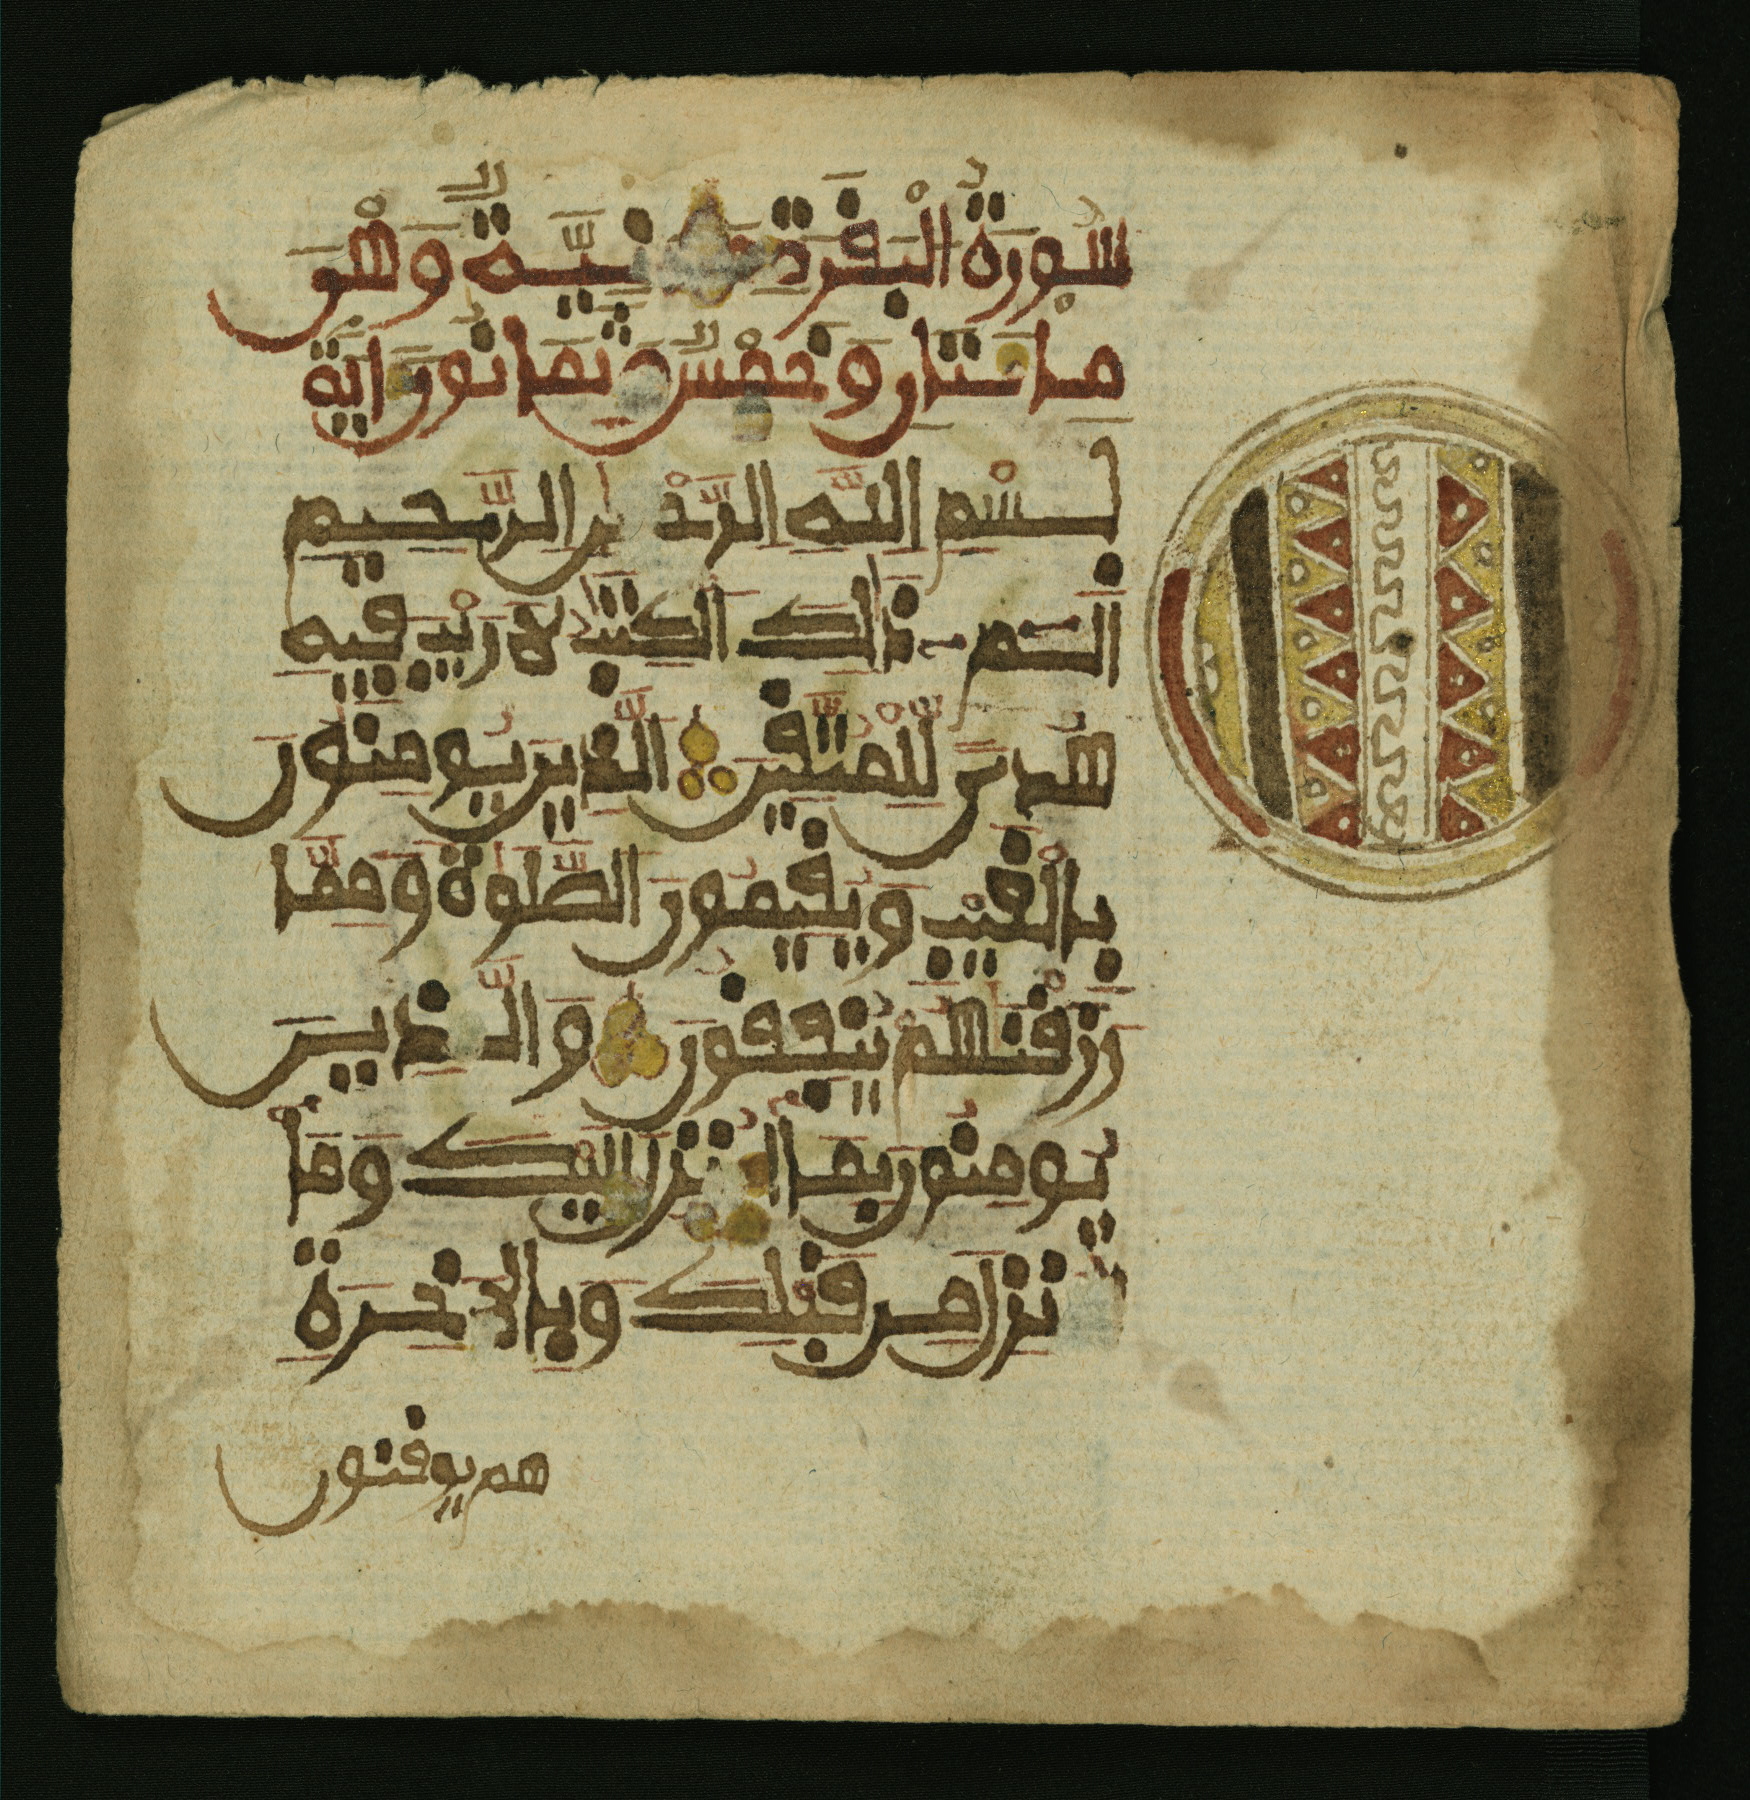 سُورَةُ الْبَقَرَةِ مَدَنِيَّةٌ وَهْىَ
مِائَتَانِ وَخَمْسٌ وَثَمَانُونَ ايَةً
بِسْمِ اللَّهِ الرَّحْمَٰنِ الرَّحِيمِ
الٓمٓ ذَٰلِكَ الْكِتَٰبُ لَا رَيْبَ فِيهِ
هُدًى لِّلْمُتَّقِينَ الَّذِينَ يُومِنُونَ
بِالْغَيْبِ وَيُقِيمُونَ الصَّلَوٰةَ وَمِمَّا
رَزَقْنَٰهُمْ يُنفِقُونَ وَالَّذِينَ
يُومِنُونَ بِمَا أُنزِلَ إِلَيْكَ وَمَا
أُنزِلَ مِن قَبْلِكَ وَبِالَاخِرَةِ
هم يوقنون